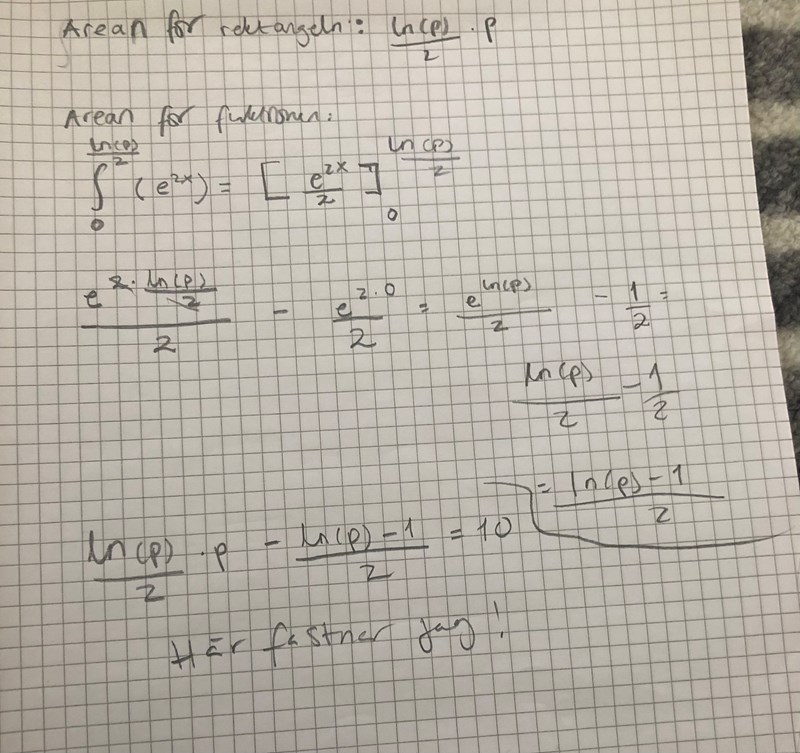 Arean för rektangeln: ln(p)/2 · p
Arean för funktionen:
∫₀^(ln(p)/2) (e^(2x)) = [ e^(2x)/2 ]₀^(ln(p)/2)
e^(2·ln(p)/2)/2 - e^(2·0)/2 = e^(ln(p))/2 - 1/2 =
ln(p)/2 - 1/2
= ln(p)-1/2
ln(p)/2 · p - ln(p)-1/2 = 10
Här fastnar jag!